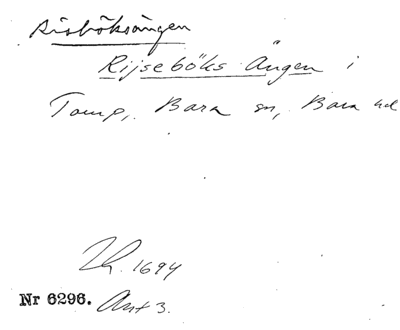 Risböksängen
Rijseböks Ängen i
Torup, Bara sn, Bara hd
1694
Nr 6296. Ant 3.